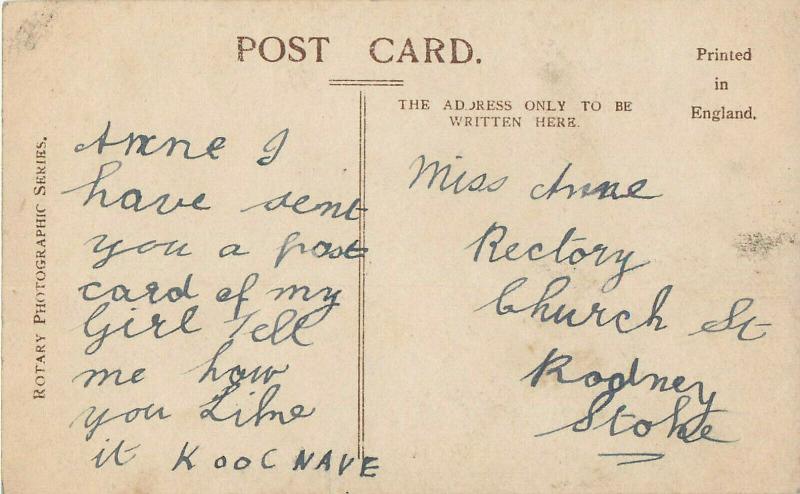 POST CARD.
Printed
in
England.
THE ADDRESS ONLY TO BE
WRITTEN HERE.
ROTARY PHOTOGRAPHIC SERIES.
Anne I
have sent
you a post
card of my
Girl Tell
me how
you Like
it K OOC NAVE
Miss Anne
Rectory
Church St
Rodney
Stoke